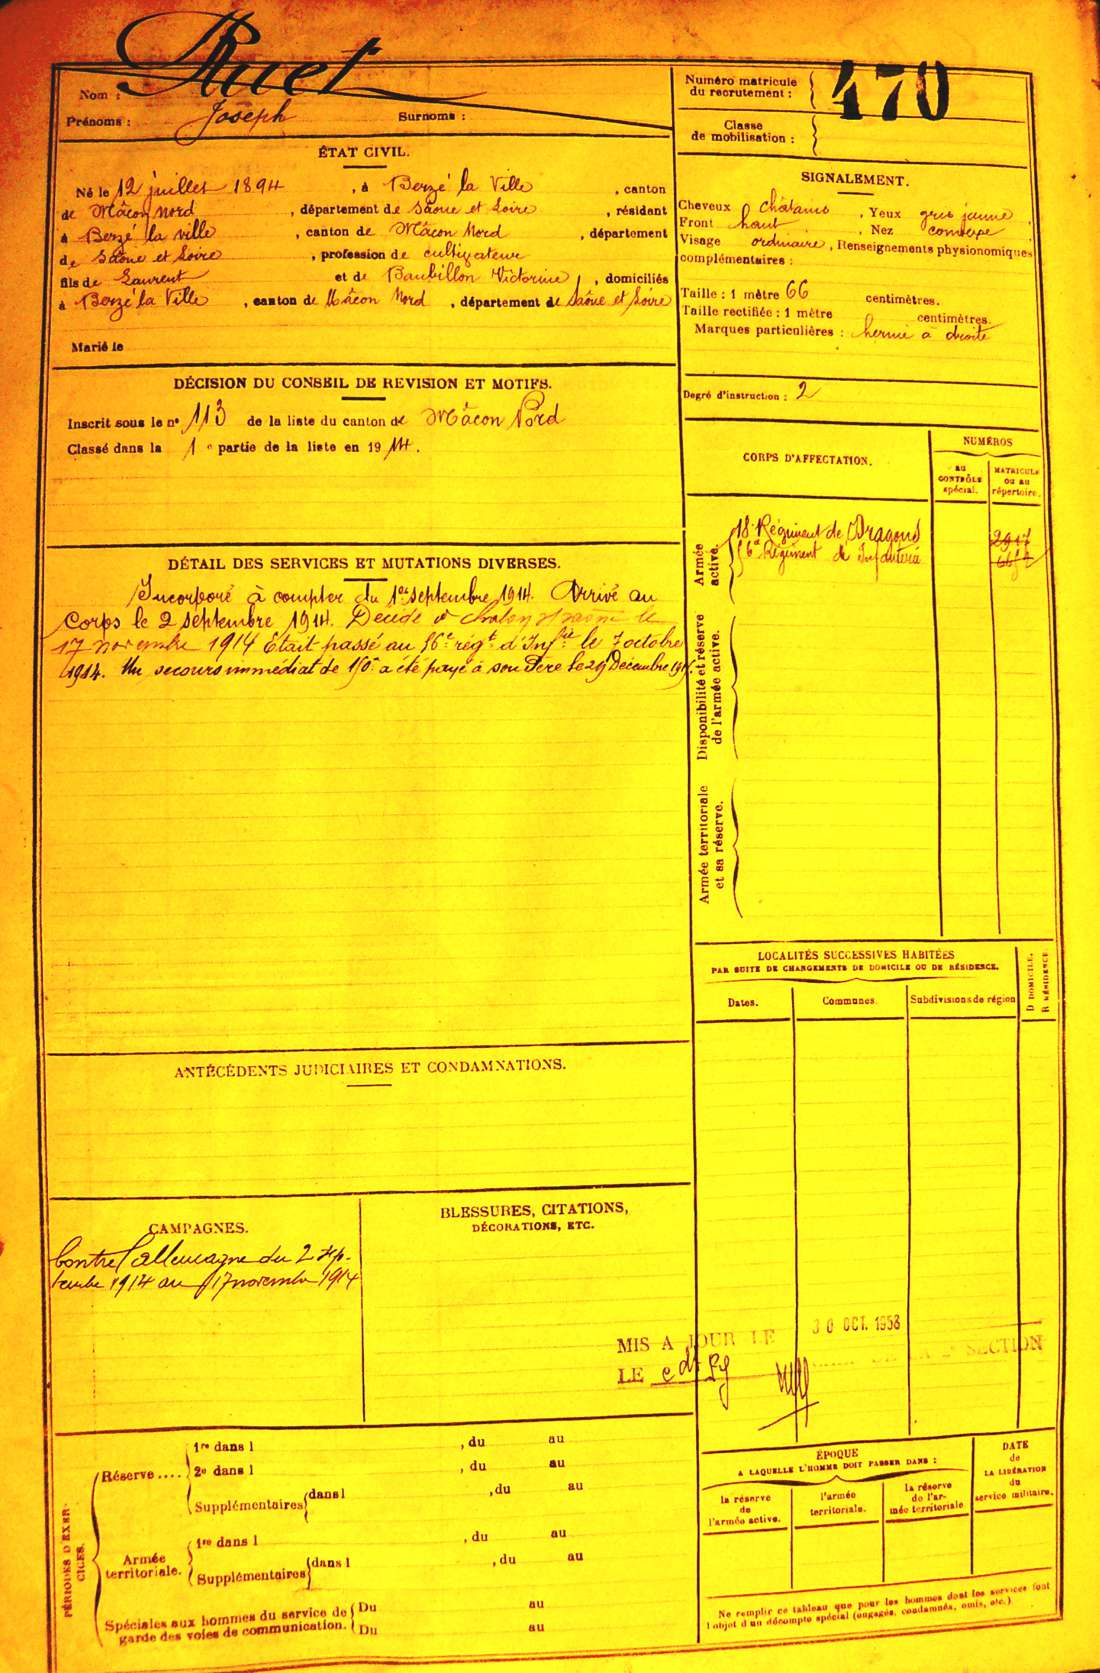 Nom : Ruet
Prénoms : Joseph Surnoms :
Numéro matricule
du recrutement : 470
Classe
de mobilisation :
ÉTAT CIVIL.
Né le 12 juillet 1894, à Berzé la Ville, canton
de Mâcon Nord, département de Saône et Loire, résidant
à Berzé la ville, canton de Mâcon Nord, département
de Saône et Loire, profession de cultivateur
fils de Laurent et de Baubillon Victorine, domiciliés
à Berzé la Ville, canton de Mâcon Nord, département de Saône et Loire
Marié le
SIGNALEMENT.
Cheveux châtains, Yeux gris jaune
Front haut, Nez convexe
Visage ordinaire, Renseignements physionomiques
complémentaires :
Taille : 1 mètre 66 centimètres.
Taille rectifiée : 1 mètre centimètres.
Marques particulières : hernie à droite
Degré d'instruction : 2
DÉCISION DU CONSEIL DE REVISION ET MOTIFS.
Inscrit sous le nº 113 de la liste du canton de Mâcon Nord
Classé dans la 1e partie de la liste en 1914.
CORPS D'AFFECTATION.
NUMÉROS
AU
CONTRÔLE
spécial.
MATRICULE
OU AU
répertoire.
Armée
active.
18e Régiment de Dragons 2917
56e Régiment de Infanterie
Disponibilité et réserve
de l'armée active.
Armée territoriale
et sa réserve.
DÉTAIL DES SERVICES ET MUTATIONS DIVERSES.
Incorporé à compter du 1er septembre 1914. Arrivé au
corps le 2 septembre 1914. Décédé à Chalon s/ Saône le
17 novembre 1914 Était passé au 56e régt d'Infie le 7 octobre
1914. Un secours immédiat de 150 a été payé à son Père le 29 Décembre
LOCALITÉS SUCCESSIVES HABITÉES
PAR SUITE DE CHANGEMENTS DE DOMICILE OU DE RÉSIDENCE.
Dates. Communes. Subdivisions de région
D DOMICILE.
R RÉSIDENCE.
ANTÉCÉDENTS JUDICIAIRES ET CONDAMNATIONS.
CAMPAGNES.
Contre l'allemagne du 2 sep-
tembre 1914 au 17 novembre 1914
BLESSURES, CITATIONS,
DÉCORATIONS, ETC.
MIS A JOUR LE 30 OCT. 1958
LE DE LA 2e SECTION
PÉRIODES D'EXER-
CICES.
Réserve ....
1re dans l , du au
2e dans l , du au
Supplémentaires dans l , du au
Armée
territoriale.
1re dans l , du au
Supplémentaires dans l , du au
Spéciales aux hommes du service de
garde des voies de communication.
Du au
Du au
ÉPOQUE
A LAQUELLE L'HOMME DOIT PASSER DANS :
la réserve
de
l'armée active.
l'armée
territoriale.
la réserve
de l'ar-
mée territoriale
DATE
de
LA LIBÉRATION
du
service militaire.
Ne remplir ce tableau que pour les hommes dont les services font
l'objet d'un décompte spécial (engagés, condamnés, omis, etc.)